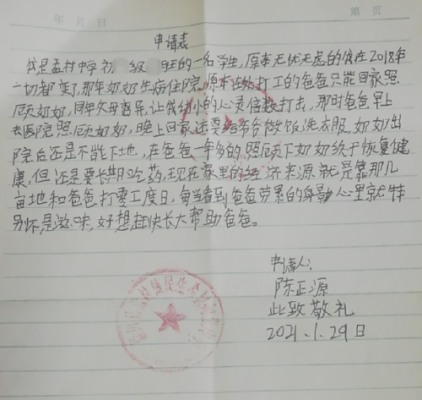 年 月 日 第 页
申请表
我是孟村中学初 级 班的一名学生，原本无忧无虑的我在2018年
一切都变了，那年奶奶生病住院，原本在外打工的爸爸只能回家照
顾奶奶，同年父母离异，让我幼小的心灵倍受打击，那时爸爸早上
去医院照顾奶奶，晚上回家还要给爷爷做饭，洗衣服，奶奶出
院后还是不能下地，在爸爸一年多的照顾下奶奶终于恢复健
康，但还是要长期吃药，现在家里的经济来源就是靠那几
亩地和爸爸打零工度日，每当看到爸爸劳累的身影心里就特
别不是滋味，好想赶快长大帮助爸爸。
申请人：
陈正源
此致敬礼
2021.1.29日